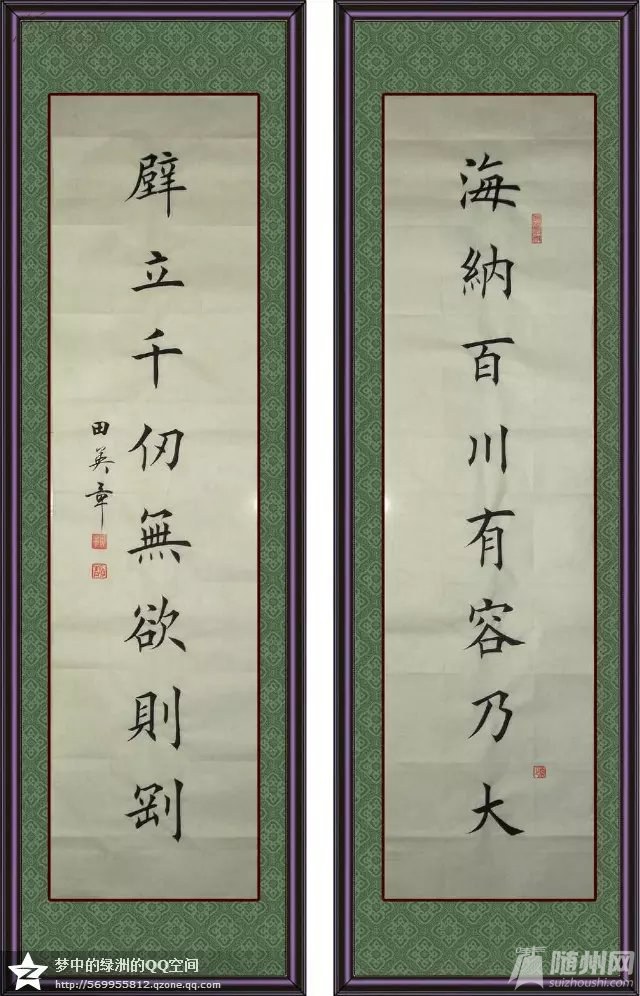 海納百川有容乃大
壁立千仞無欲則剛
田英章
梦中的绿洲的QQ空间
http://569955812.qzone.qq.com
随州网
suizhoushi.com